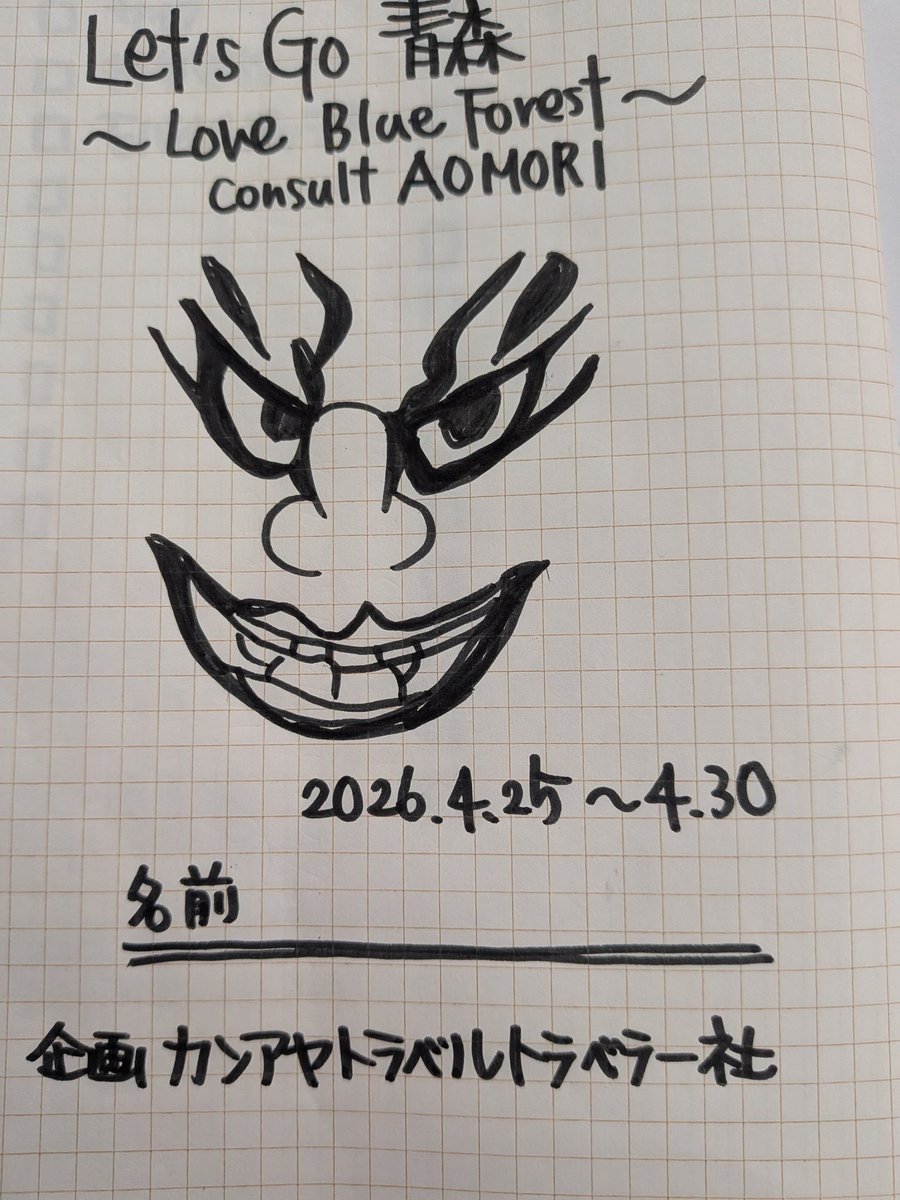 Let's Go 青森
～Love Blue Forest～
consult AOMORI
2026.4.25～4.30
名前
企画 カンアヤトラベルトラベラー社